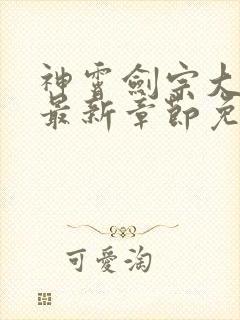 神霄劍宗大
最新章節免
可愛淘